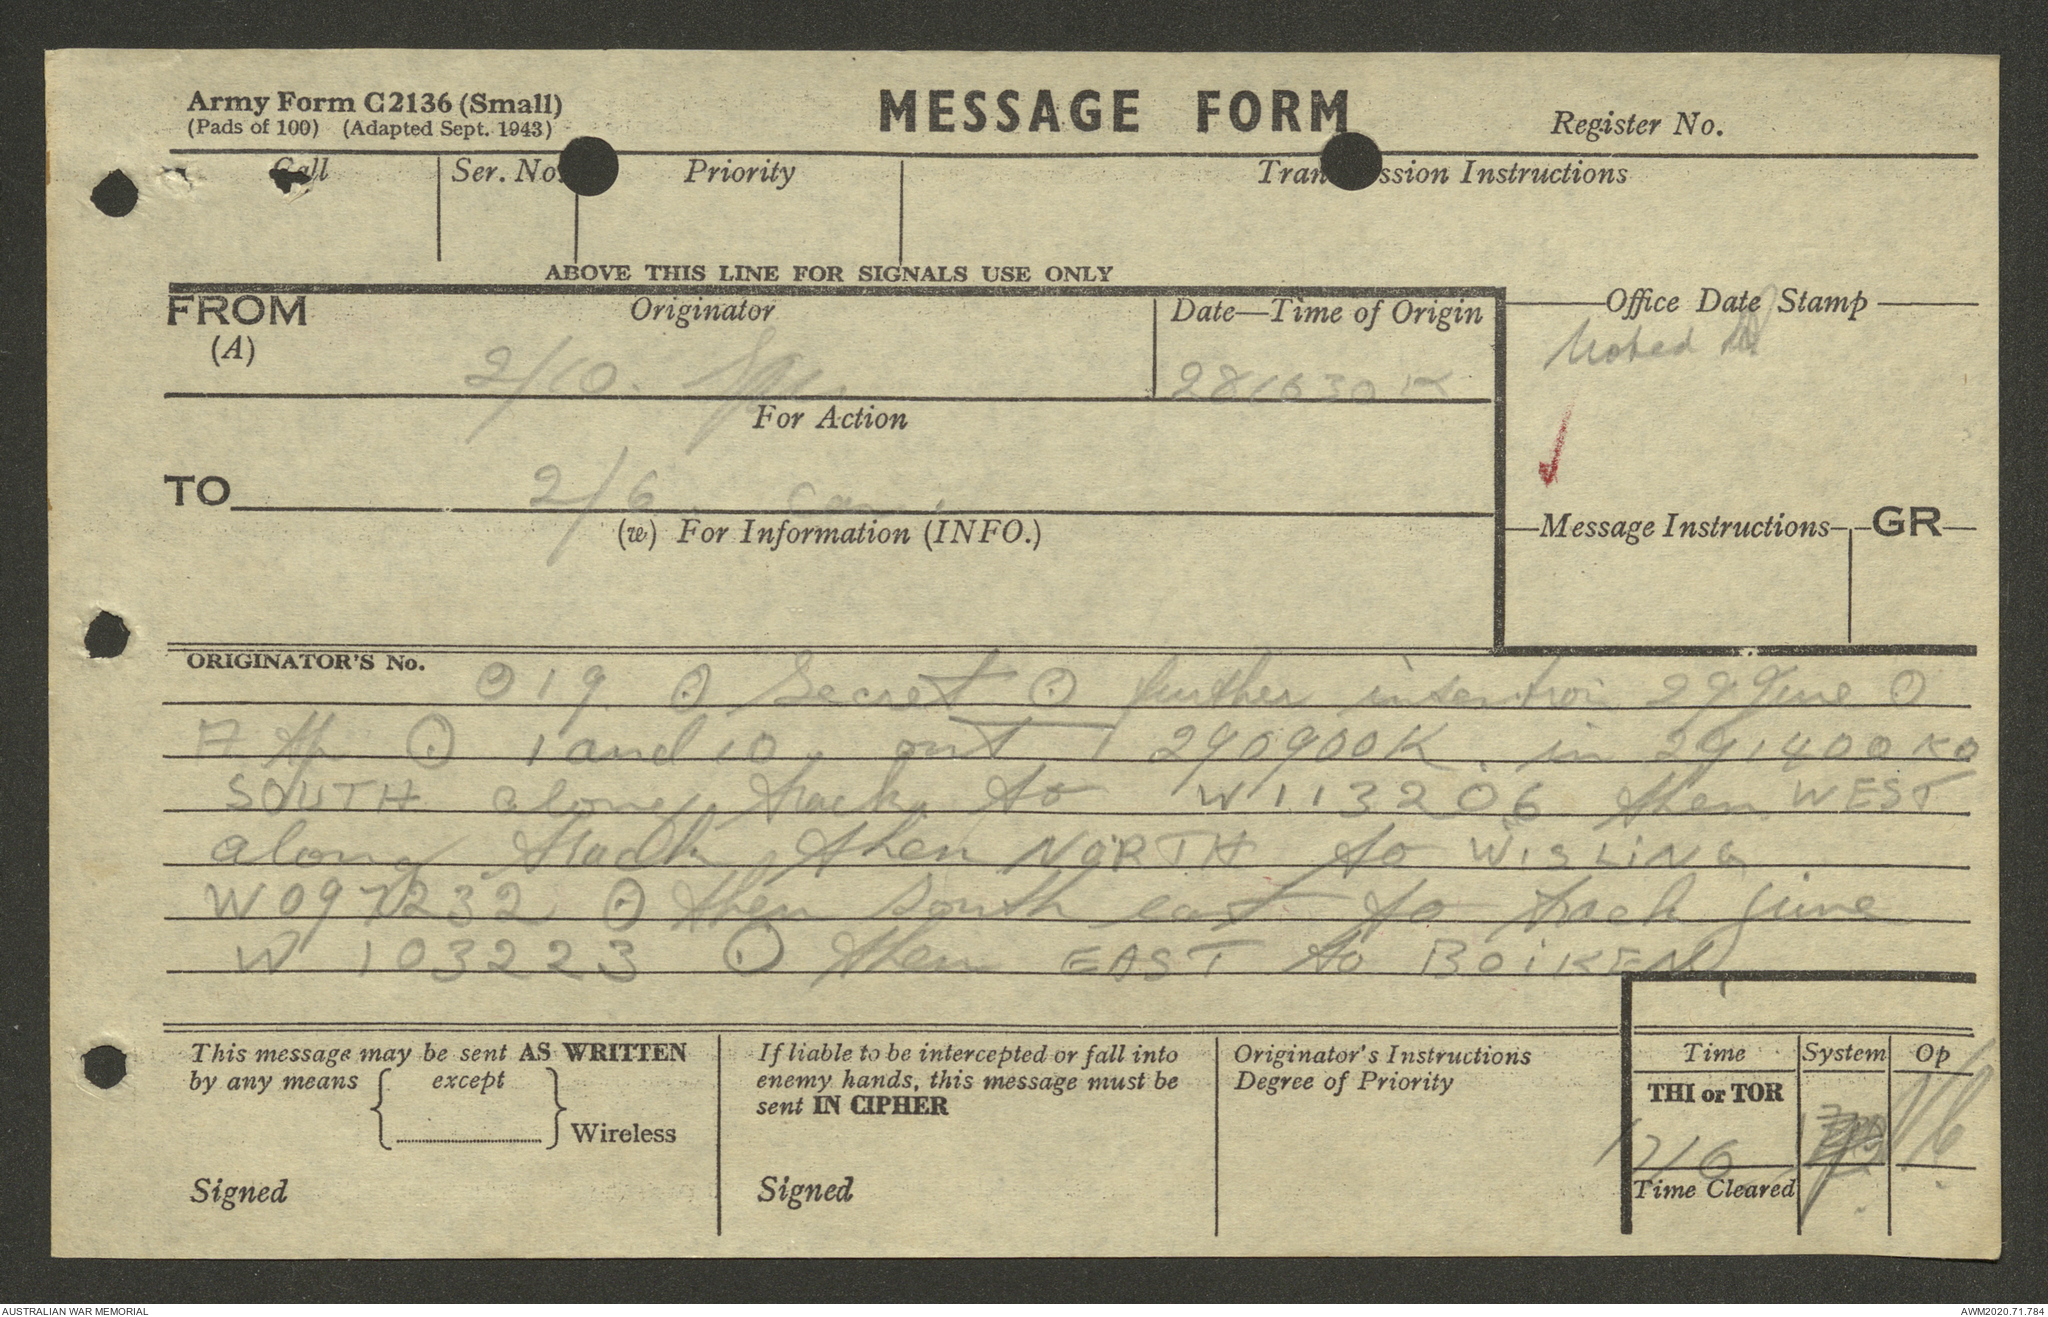 Army Form C2136 (Small)
(Pads of 100) (Adapted Sept. 1943)
MESSAGE FORM
Register No.
Call Ser. No. Priority Transmission Instructions
ABOVE THIS LINE FOR SIGNALS USE ONLY
FROM
(A)
Originator
Date—Time of Origin
Office Date Stamp
Noted
2/10.
281630K
For Action
TO
2/6
(w) For Information (INFO.)
Message Instructions GR
ORIGINATOR'S No.
019 ⊙ Secret ⊙ further intention 29 June ⊙
⊙ 1 and 10. out 290900K. in 291400K ⊙
SOUTH along track to W113206 then WEST
along track then NORTH to WISLING
W097232 ⊙ then south east to track junc
W 103223 ⊙ then EAST to BOIKEN
This message may be sent AS WRITTEN
by any means except
Wireless
Signed
If liable to be intercepted or fall into
enemy hands, this message must be
sent IN CIPHER
Signed
Originator's Instructions
Degree of Priority
Time System Op
THI or TOR
1716
Time Cleared
AUSTRALIAN WAR MEMORIAL
AWM2020.71.784